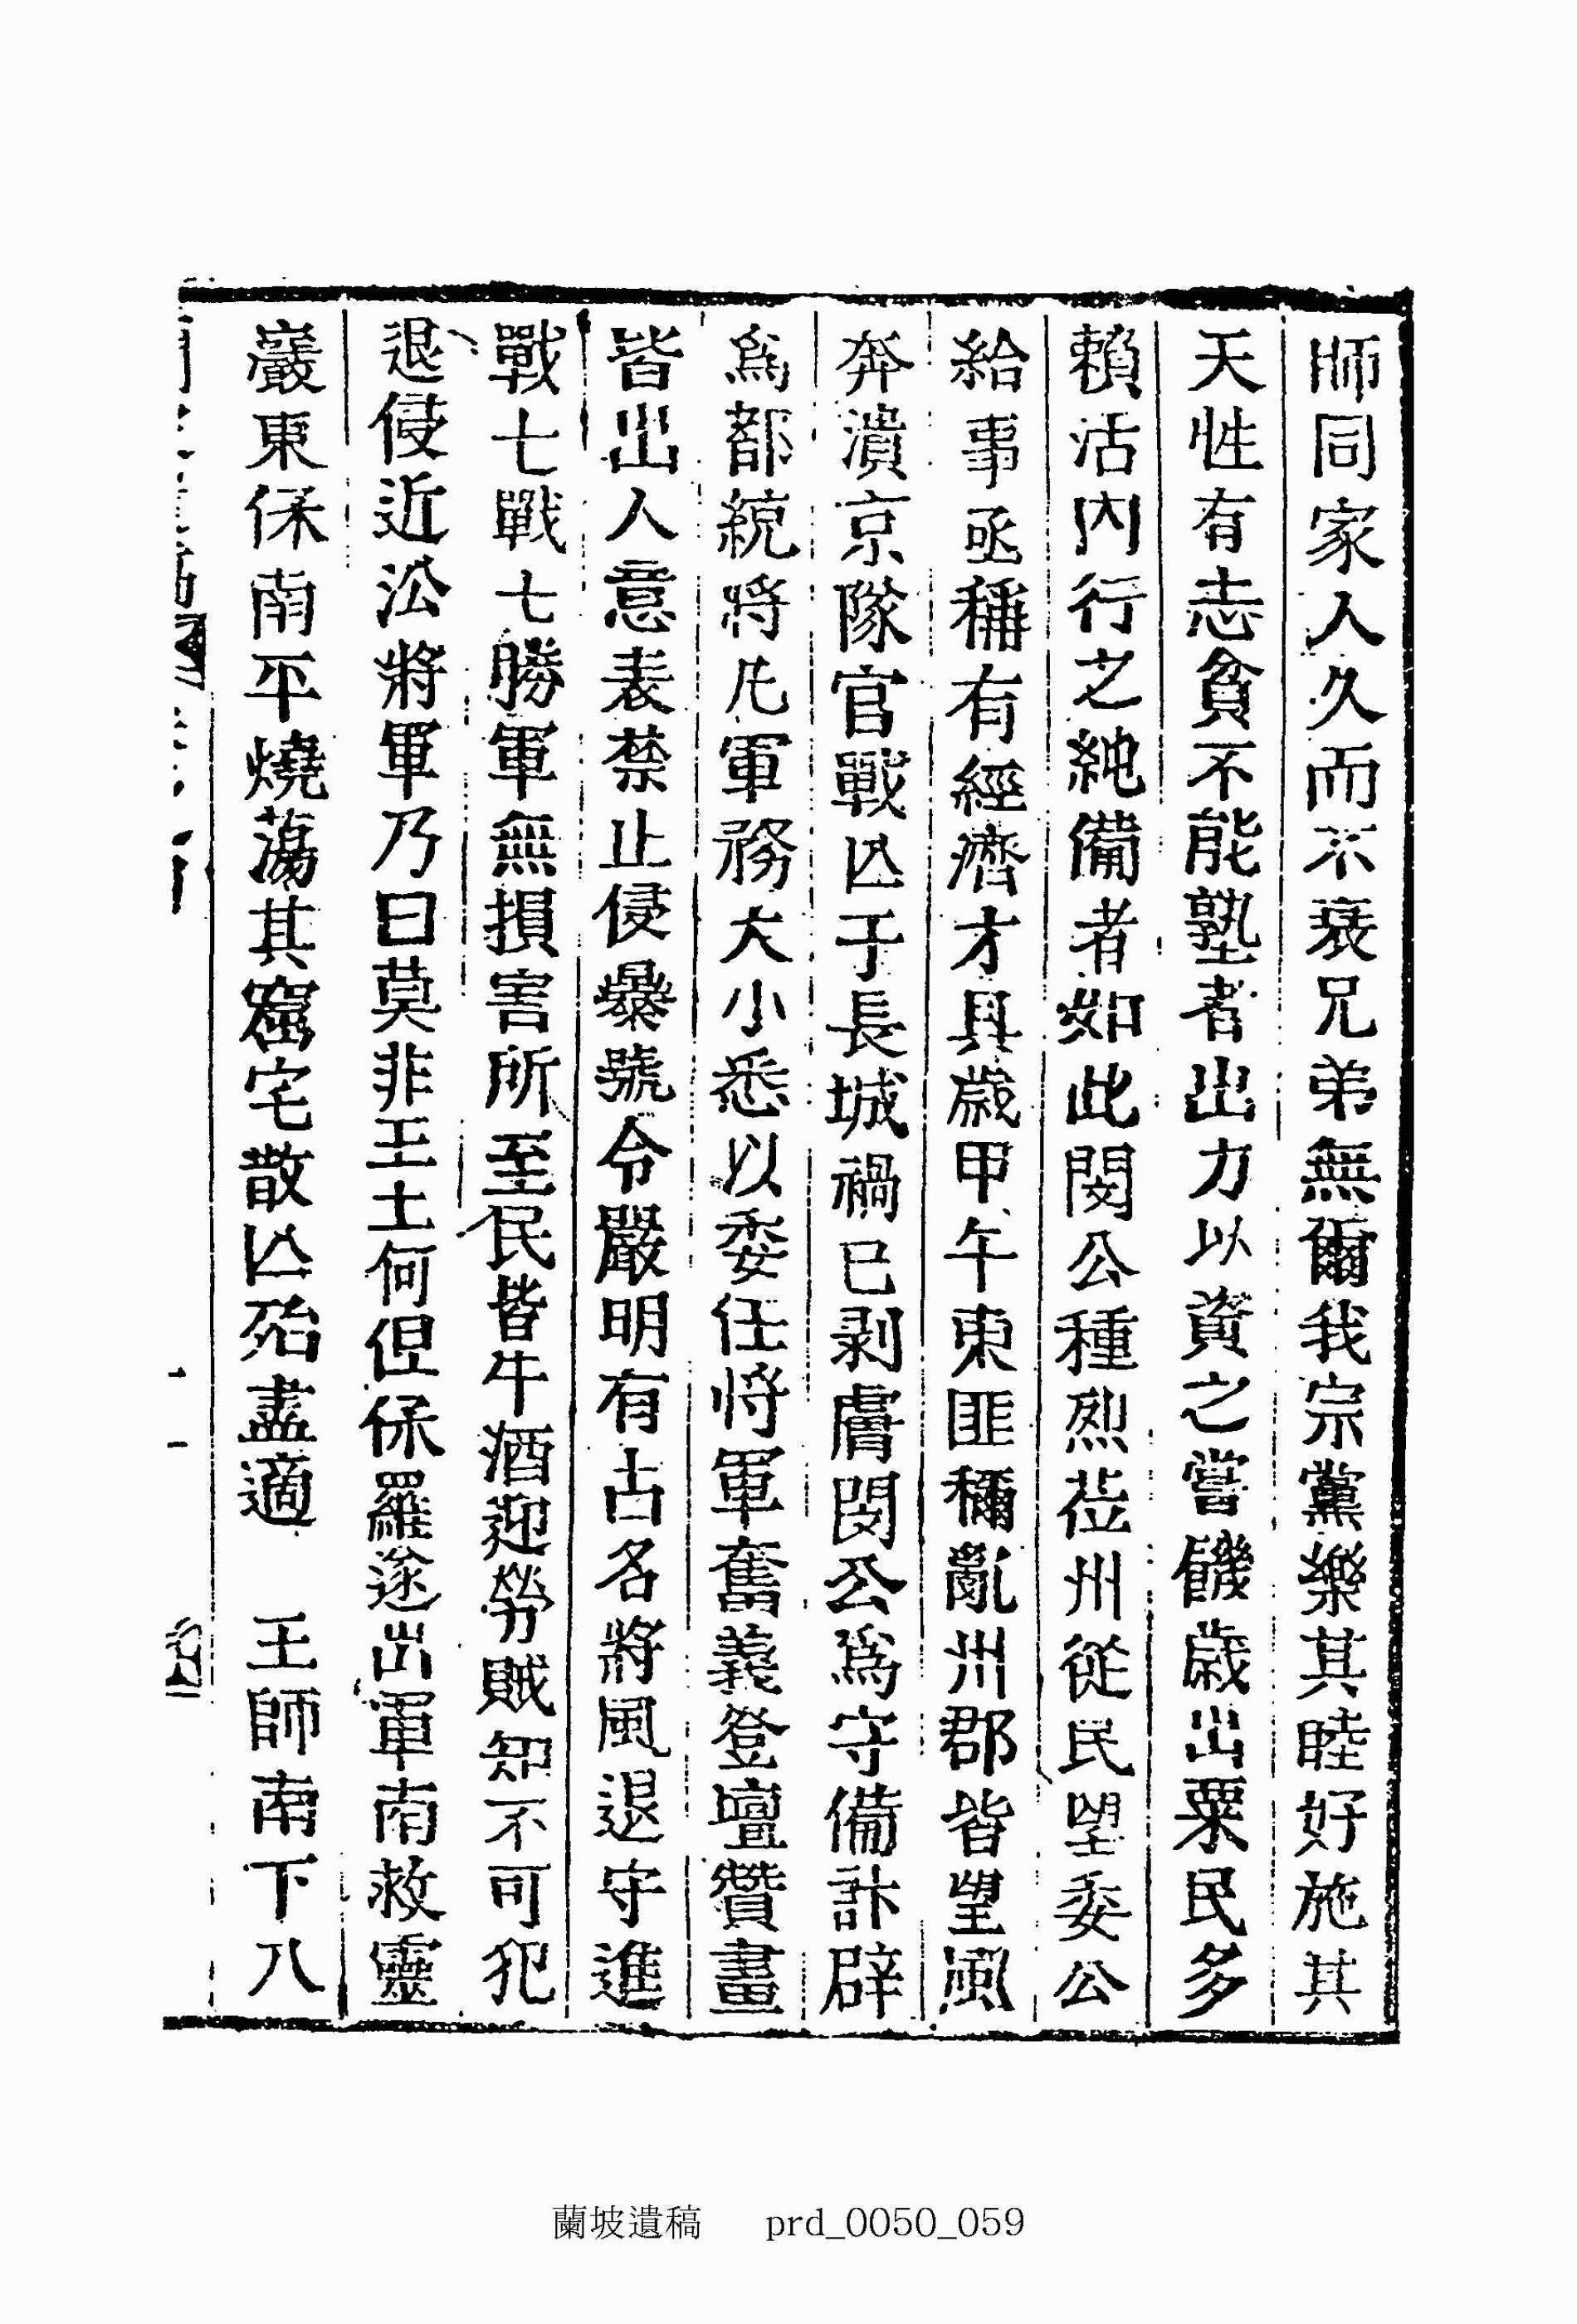 師同家人久而不衰兄弟無爾我宗黨樂其睦好施其
天性有志貧不能塾者出力以資之嘗饑歲出粟民多
賴活內行之純備者如此閔公種烈莅州從民望委公
給事亟稱有經濟才具歲甲午東匪稱亂州郡皆望風
奔潰京隊官戰亾于長城禍已剥膚閔公爲守備計辟
爲都統將凡軍務大小悉以委任將軍奮義登壇贊畫
皆出人意表禁止侵暴號令嚴明有古名將風退守進
戰七戰七勝軍無損害所至民皆牛酒迎勞賊知不可犯
退侵近沿將軍乃曰莫非王土何但保羅遂出軍南救靈
巖東保南平燒蕩其窟宅散亾殆盡適 王師南下八
蘭坡遺稿 prd_0050_059